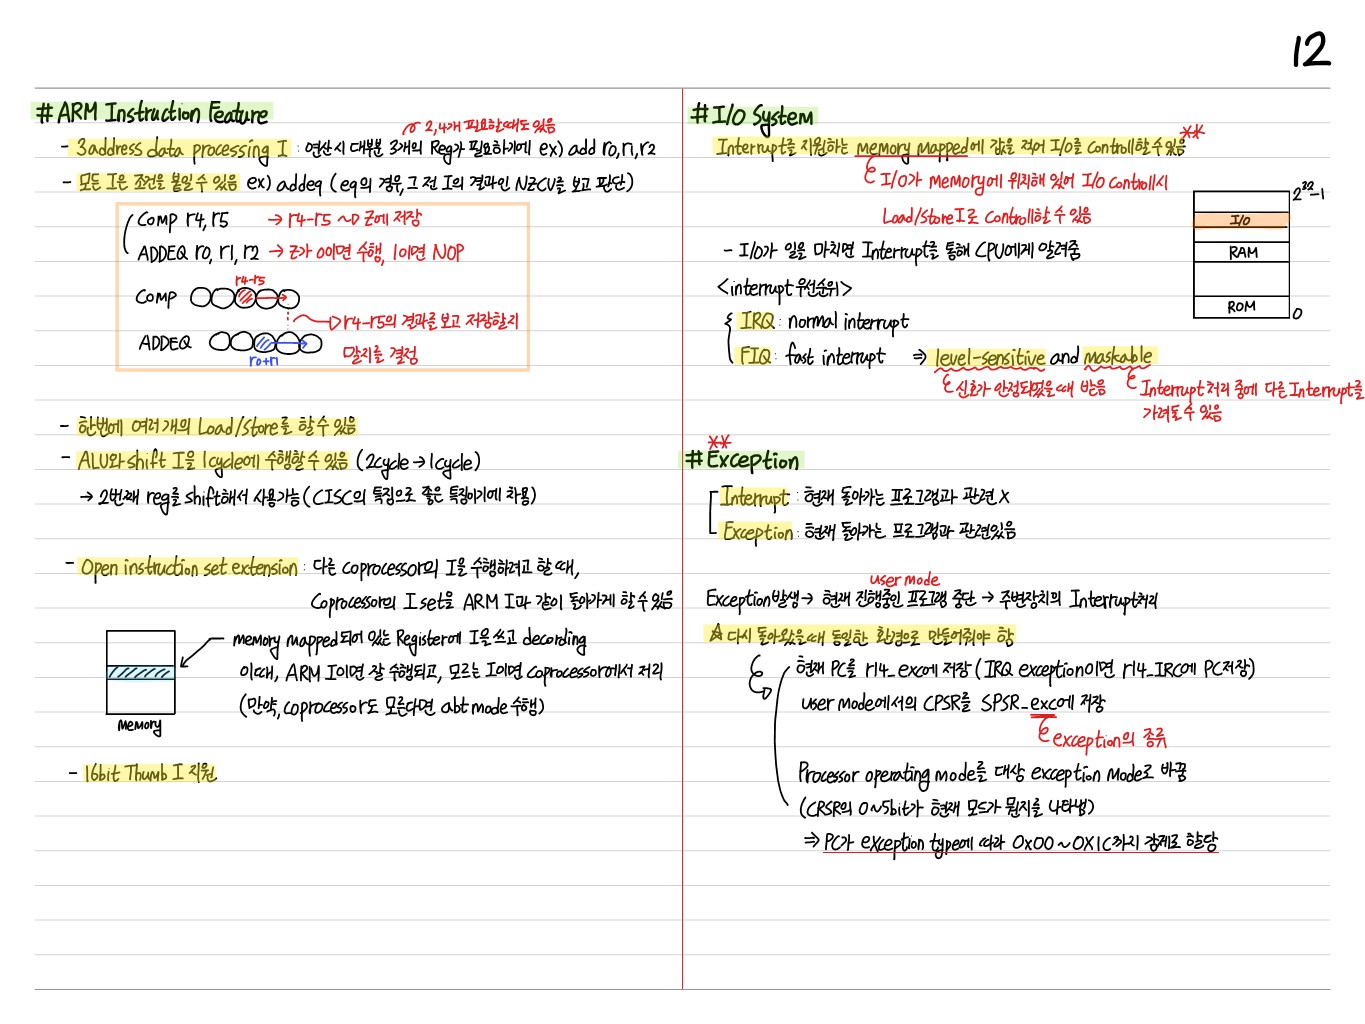 12
# ARM Instruction Feature
2,4개 필요한때도 있음
- 3address data processing I : 연산시 대부분 3개의 Reg가 필요하기에 ex) add r0,r1,r2
- 모든 I은 조건을 붙일수 있음 ex) addeq (eq의 경우, 그 전 I의 결과인 NZCV를 보고 판단)
Comp r4, r5 → r4-r5 ~> Z에 저장
ADDEQ r0, r1, r2 → Z가 0이면 수행, 1이면 NOP
r4-r5
Comp
r4-r5의 결과를 보고 저장할지
ADDEQ
말지를 결정
r0+r1
- 한번에 여러개의 Load/Store를 할수 있음
- ALU와 shift I을 1cycle에 수행할수 있음 (2cycle→1cycle)
→ 2번째 reg를 shift해서 사용가능 (CISC의 특징으로 좋은 특징이기에 차용)
- Open instruction set extension : 다른 coprocessor의 I을 수행하려고 할 때,
Coprocessor의 I set을 ARM I과 같이 돌아가게 할수 있음
memory mapped되어 있는 Register에 I을 쓰고 decording
이때, ARM I이면 잘 수행되고, 모르는 I이면 coprocessor에서 처리
(만약, coprocessor도 모른다면 abt mode 수행)
memory
- 16bit Thumb I 지원
# I/O System
Interrupt를 지원하는 memory mapped에 값을 적어 I/O를 Controll할 수 있음 **
I/O가 memory에 위치해 있어 I/O controll시
Load/Store I로 Controll할 수 있음
2^32-1
I/O
RAM
ROM
0
- I/O가 일을 마치면 Interrupt를 통해 CPU에게 알려줌
<interrupt 우선순위>
IRQ : normal interrupt
FIQ : fast interrupt ⇒ level-sensitive and maskable
신호가 안정되었을때 받음
Interrupt 처리 중에 다른 Interrupt를
가려둘 수 있음
**
# Exception
Interrupt : 현재 돌아가는 프로그램과 관련 X
Exception : 현재 돌아가는 프로그램과 관련있음
user mode
Exception발생 → 현재 진행중인 프로그램 중단 → 주변장치의 Interrupt처리
☆ 다시 돌아왔을때 동일한 환경으로 만들어줘야 함
현재 PC를 r14_exc에 저장 (IRQ exception이면 r14_IRC에 PC저장)
user mode에서의 CPSR를 SPSR_exc에 저장
exception의 종류
Processor operating mode를 대상 exception Mode로 바꿈
(CRSR의 0~5bit가 현재 모드가 뭔지를 나타냄)
⇒ PC가 exception type에 따라 0x00 ~ 0X1C까지 강제로 할당